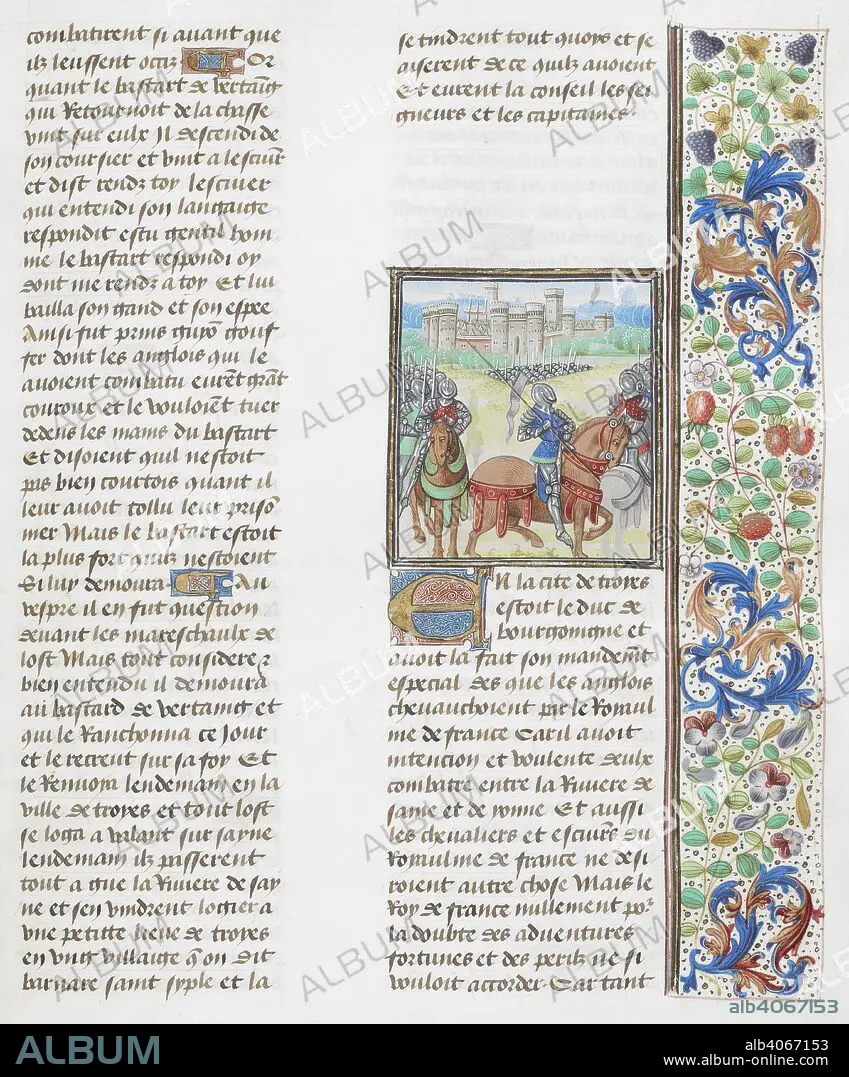 combatirent si auant que
ilz leussent occiz Or
quant le bastart de vertaing
qui Retournoit de la chasse
vint sur eulx Il descendi de
son coursier et vint a lescuier
et dist rendz toy lescuier
qui entendi son langaige
respondit estu gentil hom
me le bastart respondi oy
dont me rendz a toy Et lui
bailla son gand et son espee
Ainsi fut prins guyon gouf
fer dont les anglois qui le
auoient combatu eurent grant
couroux et le vouloient tuer
dedens les mains du bastart
Et disoient quil nestoit
pas bien courtois quant il
leur auoit tollu leur prison
nier Mais le bastart estoit
la plus fort quilz nestoient
Si luy demoura Au
vespre il en fut question
deuant les mareschaulx de
lost Mais tout considere et
bien entendu il demoura
au bastard de vertaing et
qui le Ranchonna ce Jour
et le recreut sur sa foy Et
le Renuoia lendemain en la
ville de troyes et tout lost
se loga a valant sur sayne
lendemain ilz passerent
tout a gue la Riuiere de say
ne et sen vindrent logier a
vne petitte lieue de troyes
en vng villaige qon dit
barnare saint syple et la
se tindrent tout quoys et se
aiserent de ce quilz auoient
Et eurent la conseil les sei
gneurs et les capitaines
En la cite de troyes
estoit le duc de
bourgoingne et
auoit la fait son mandement
especial des que les anglois
cheuauchoient par le Royaul
me de france Car il auoit
intention et voulente deulx
combatre entre la Riuiere de
sayne et de yonne Et aussi
les cheualiers et escuiers du
Royaulme de france ne desi
roient autre chose Mais le
Roy de france nullement por
la doubte des aduentures
fortunes et des perilz ne si
vouloit accorder Car tant
alb4067153
ALBUM
alb4067153
www.album-online.com